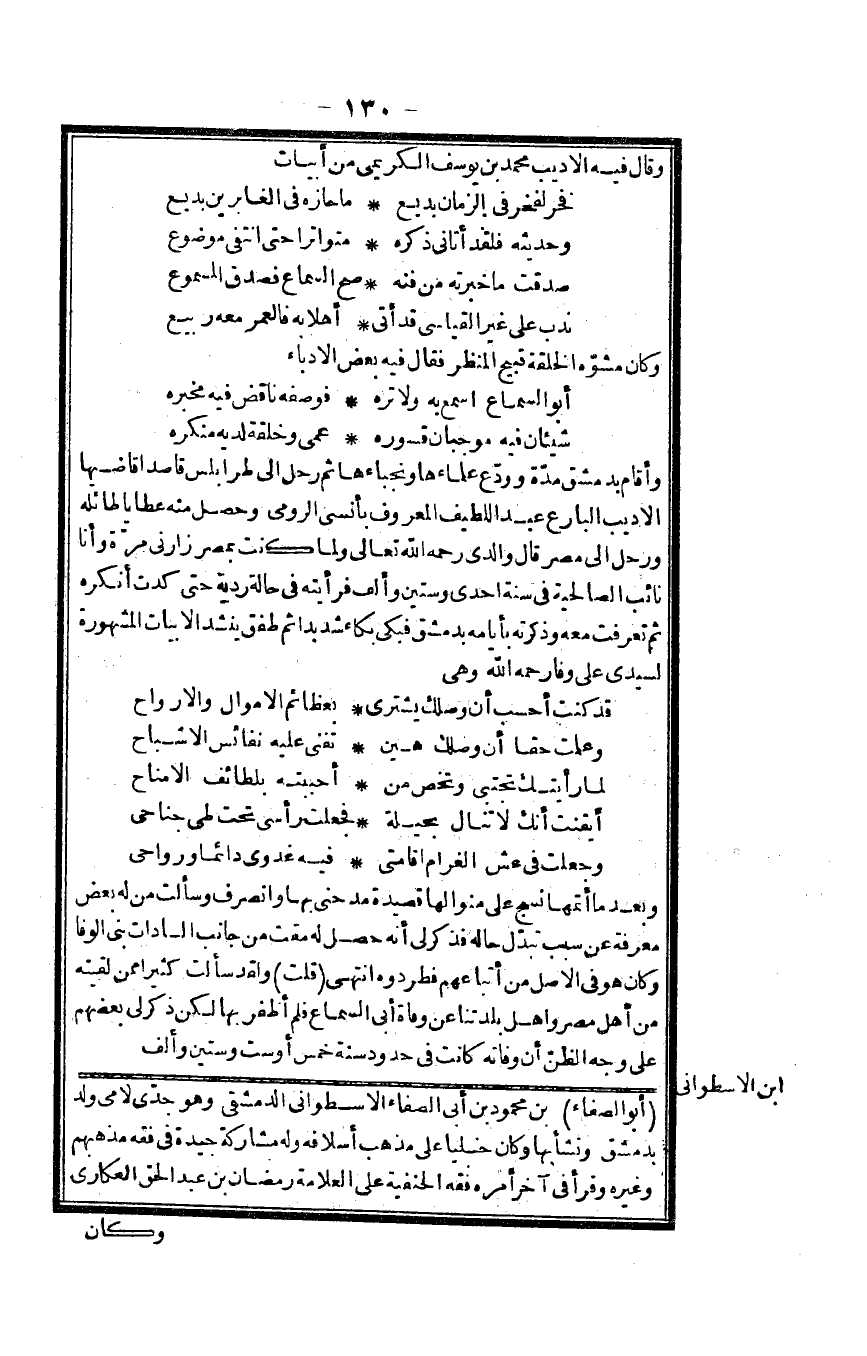 - ١٣٠ -
وقال فيه الاديب محمد بن يوسف الكريمى من أبيات
فخر لفخر فى الزمان بديع * ما حازه فى الغابرين بديع
وحديثه فلقد أتانى ذكره * متواترا حتى انتفى موضوع
صدقت ما خبرته من فنه * صح السماع فصدق المسموع
ندب على غير القياس قد أتى * أهلا به فالعمر معه ربيع
وكان مشوّه الخلقة قبيح المنظر فقال فيه بعض الادباء
أبو السماع اسمع به ولا تره * فوصفه ناقض فيه مخبره
شيئان فيه موجبان قسوره * عمى وخلقة لديه منكره
وأقام بدمشق مدّة وودّع علماءها ونجباءها ثم رحل الى طرابلس قاصدا قاضيها
الاديب البارع عبد اللطيف المعروف بأنسى الرومى وحصل منه عطايا طائله
ورحل الى مصر قال والدى رحمه الله تعالى ولما كنت بمصر زارنى مرّة وأنا
نائب الصالحية فى سنة احدى وستين وألف فرأيته فى حالة ردية حتى كدت أنكره
ثم تعرفت معه وذكرته بأيامه بدمشق فبكى بكاء شديدا ثم طفق ينشد الابيات المشهورة
لسيدى على وفا رحمه الله وهى
قد كنت أحسب أن وصلك يشترى * بعظائم الاموال والارواح
وعلمت حقا أن وصلك هين * تفنى عليه نفائس الاشباح
لما رأيتك تجتبى وتخص من * أحببته بلطائف الامناح
أيقنت أنك لا تنال بحيلة * فجعلت رأسى تحت طى جناحى
وجعلت فى عش الغرام اقامتى * فيه غدوى دائما ورواحى
وبعد ما أتمها نسج على منوالها قصيدة مدحنى بها وانصرف وسألت من له بعض
معرفة عن سبب تبدّل حاله فذكر لى أنه حصل له مقت من جانب السادات بنى الوفا
وكان هو فى الاصل من أتباعهم فطردوه انتهى (قلت) ولقد سألت كثيرا ممن لقيته
من أهل مصر واهل بلدتنا عن وفاة أبى السماع فلم أظفر بها لكن ذكر لى بعضهم
على وجه الظنّ أن وفاته كانت فى حدود سنة خمس أو ست وستين وألف
ابن الاسطوانى
(أبو الصفاء) بن محمود بن أبى الصفاء الاسطوانى الدمشقى وهو جدّى لامى ولد
بدمشق ونشأ بها وكان حنبليا على مذهب أسلافه وله مشاركة جيدة فى فقه مذهبهم
وغيره وقرأ فى آخر أمره فقه الحنفية على العلامة رمضان بن عبد الحق العكارى
وكان